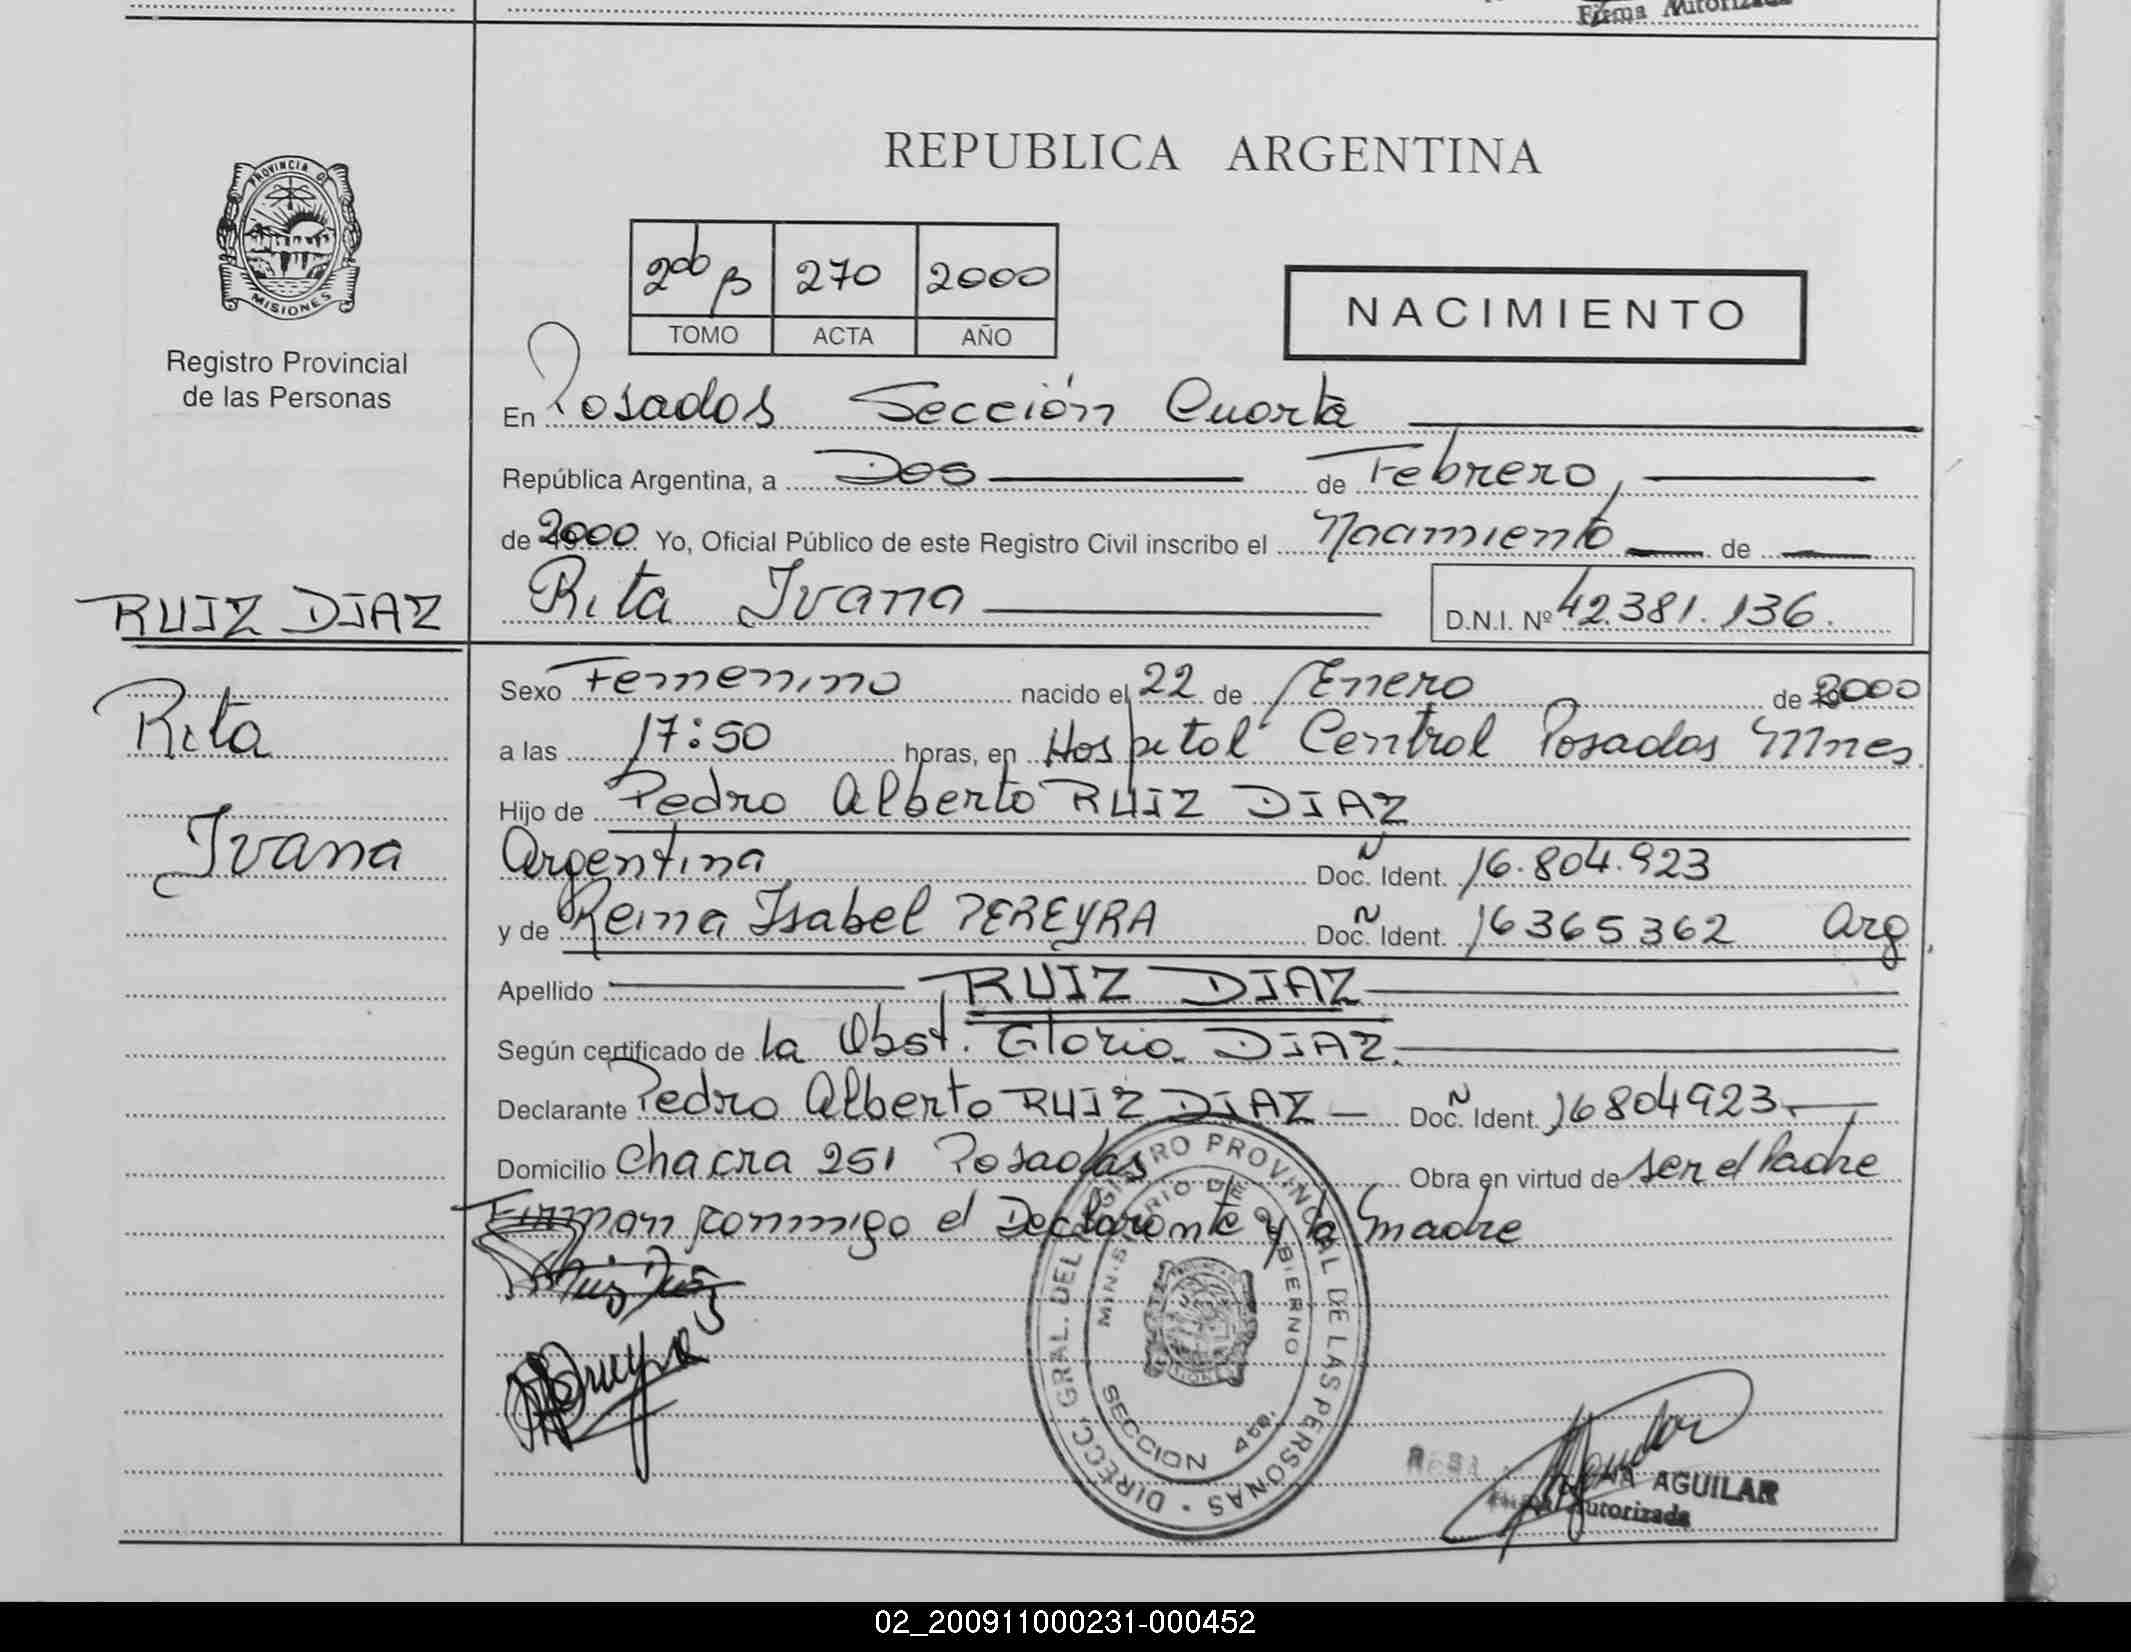 Firma Autorizada
PROVINCIA DE
MISIONES
Registro Provincial
de las Personas
REPUBLICA ARGENTINA
270 2000
TOMO ACTA AÑO
NACIMIENTO
En Posadas Sección Cuarta
República Argentina, a Dos de Febrero,
de 2000 Yo, Oficial Público de este Registro Civil inscribo el Nacimiento de
Rita Ivana D.N.I. Nº 42.381.136.
RUIZ DIAZ
Rita
Ivana
Sexo Femenino nacido el 22 de Enero de 2000
a las 17:50 horas, en Hospital Central Posadas Mnes.
Hijo de Pedro Alberto RUIZ DIAZ
Argentina Doc. Ident. 16.804.923
y de Reina Isabel PEREYRA Doc. Ident. 16365362 Arg.
Apellido RUIZ DIAZ
Según certificado de la Obst. Gloria DIAZ.
Declarante Pedro Alberto RUIZ DIAZ Doc. Ident. 16804923
Domicilio Chacra 251 Posadas Obra en virtud de ser el Padre
Firman conmigo el Declarante y la madre
Ruiz Diaz
Pereyra
DIRECC. GRAL. DEL REGISTRO PROVINCIAL DE LAS PERSONAS
MINISTERIO DE GOBIERNO
SECCION 4ta.
AGUILAR
Autorizada
02_200911000231-000452